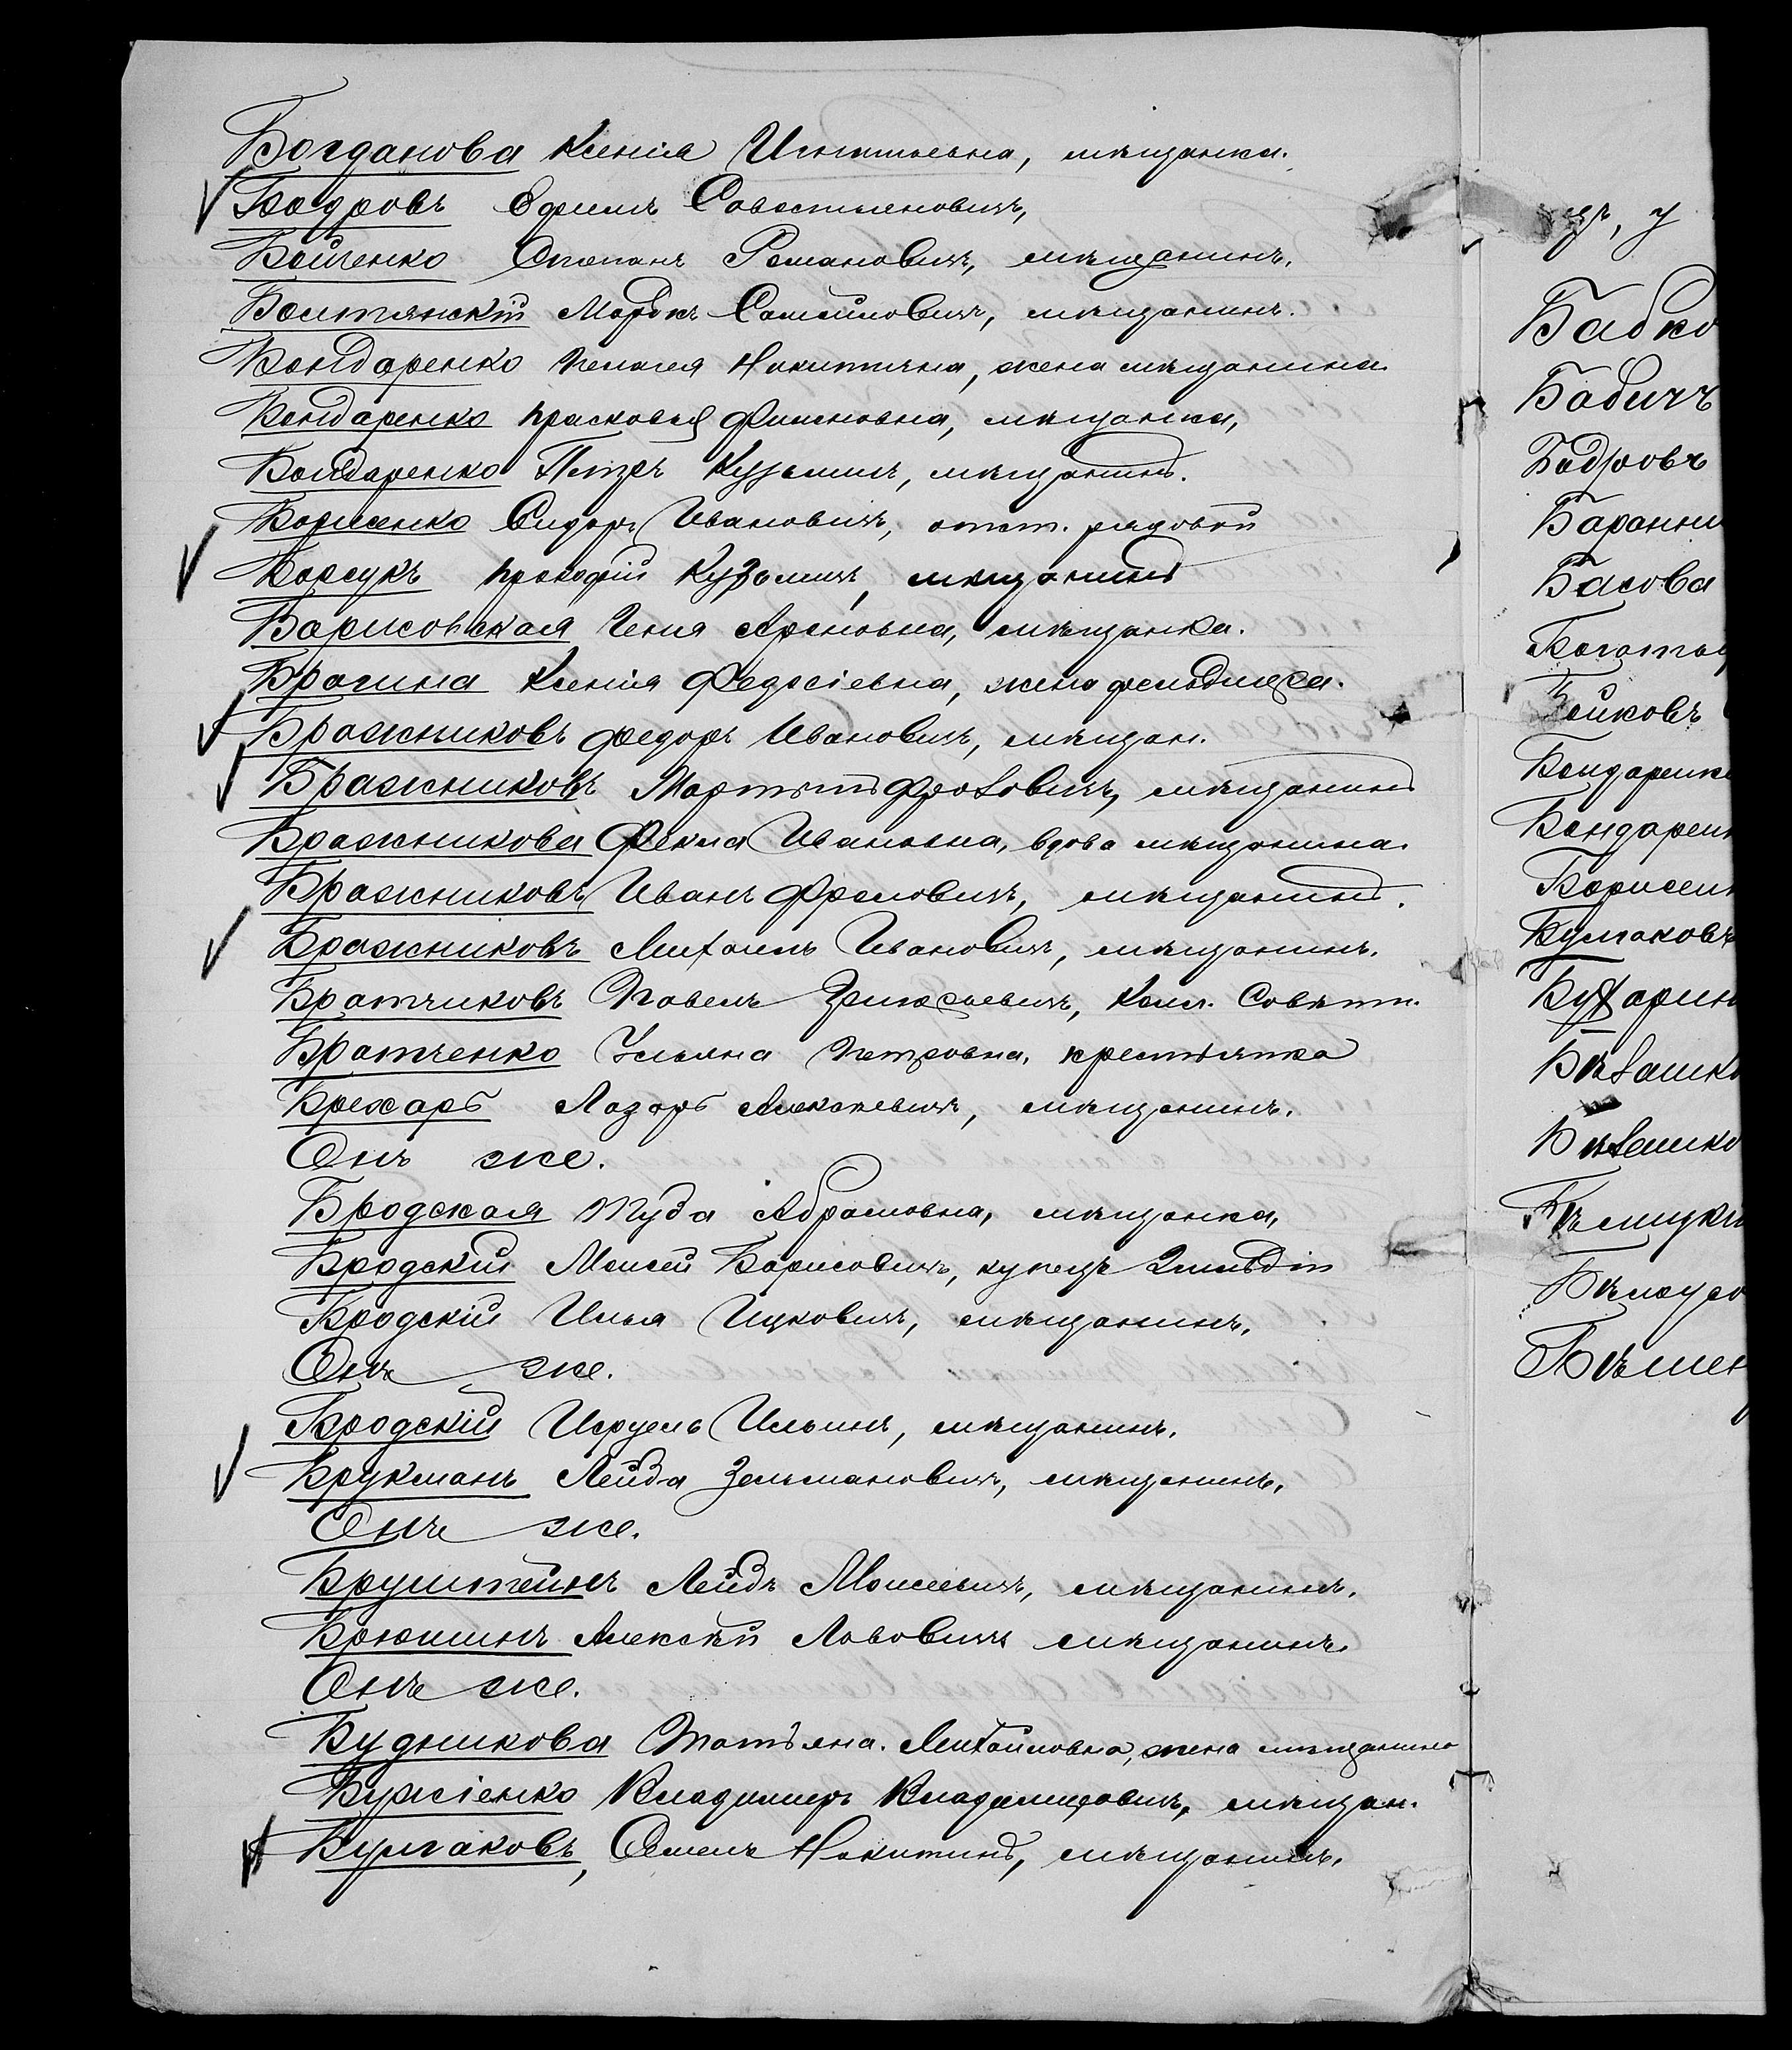 Богданова Ксенія Игнатьевна, мѣщанка.
Бодровъ Ефимъ Савостьяновичъ,
Бойченко Степанъ Романовичъ, мѣщанинъ.
Болтянскій Мордко Самойловичъ, мѣщанинъ.
Бондаренко Пелагея Никитична, жена мѣщанина.
Бондаренко Прасковья Филиповна, мѣщанка,
Бондаренко Петръ Кузьминъ, мѣщанинъ.
Борисенко Сидоръ Ивановичъ, отст. рядовой
Борсукъ Прокофій Кузьмичъ, мѣщанинъ
Борисовская Ченя Ароновна, мѣщанка.
Брагина Ксенія Федосіевна, жена фельдшера.
Бражниковъ Федоръ Ивановичъ, мѣщан.
Бражниковъ Мартынъ Фроловичъ, мѣщанинъ
Бражникова Фекла Ивановна, вдова мѣщанина.
Бражниковъ Иванъ Фроловичъ, мѣщанинъ.
Бражниковъ Михаилъ Ивановичъ, мѣщанинъ.
Братчиковъ Павелъ Григорьевичъ, Колл. Совѣтн.
Братченко Ульяна Петровна, крестьянка
Брехарь Лазарь мѣщанинъ.
Онъ же.
Бродская Туба Абрамовна, мѣщанка,
Бродскій Моисей Борисовичъ, купецъ 2 гильдіи
Бродскій Илья Ицковичъ, мѣщанинъ,
Онъ же.
Бродскій Исруель Ильинъ, мѣщанинъ.
Брукманъ Лейба Зельмановичъ, мѣщанинъ,
Онъ же.
Бруштейнъ Лейбъ Моисеевичъ, мѣщанинъ.
Брюшинъ Алексѣй Львовичъ мѣщанинъ.
Онъ же.
Будникова Татьяна Михайловна, жена мѣщанина
Владимиръ Владимировичъ, мѣщан.
Булгаковъ, Семенъ Никитинъ, мѣщанинъ.
Бабко
Бабичъ
Бодровъ
Баранни
Басова
Богаты
Бойковъ
Бондаренко
Бондарен
Борисен
Булгаковъ
Бухарин
Бѣлашко
Бѣлашко
Бѣлицки
Бѣлоусо